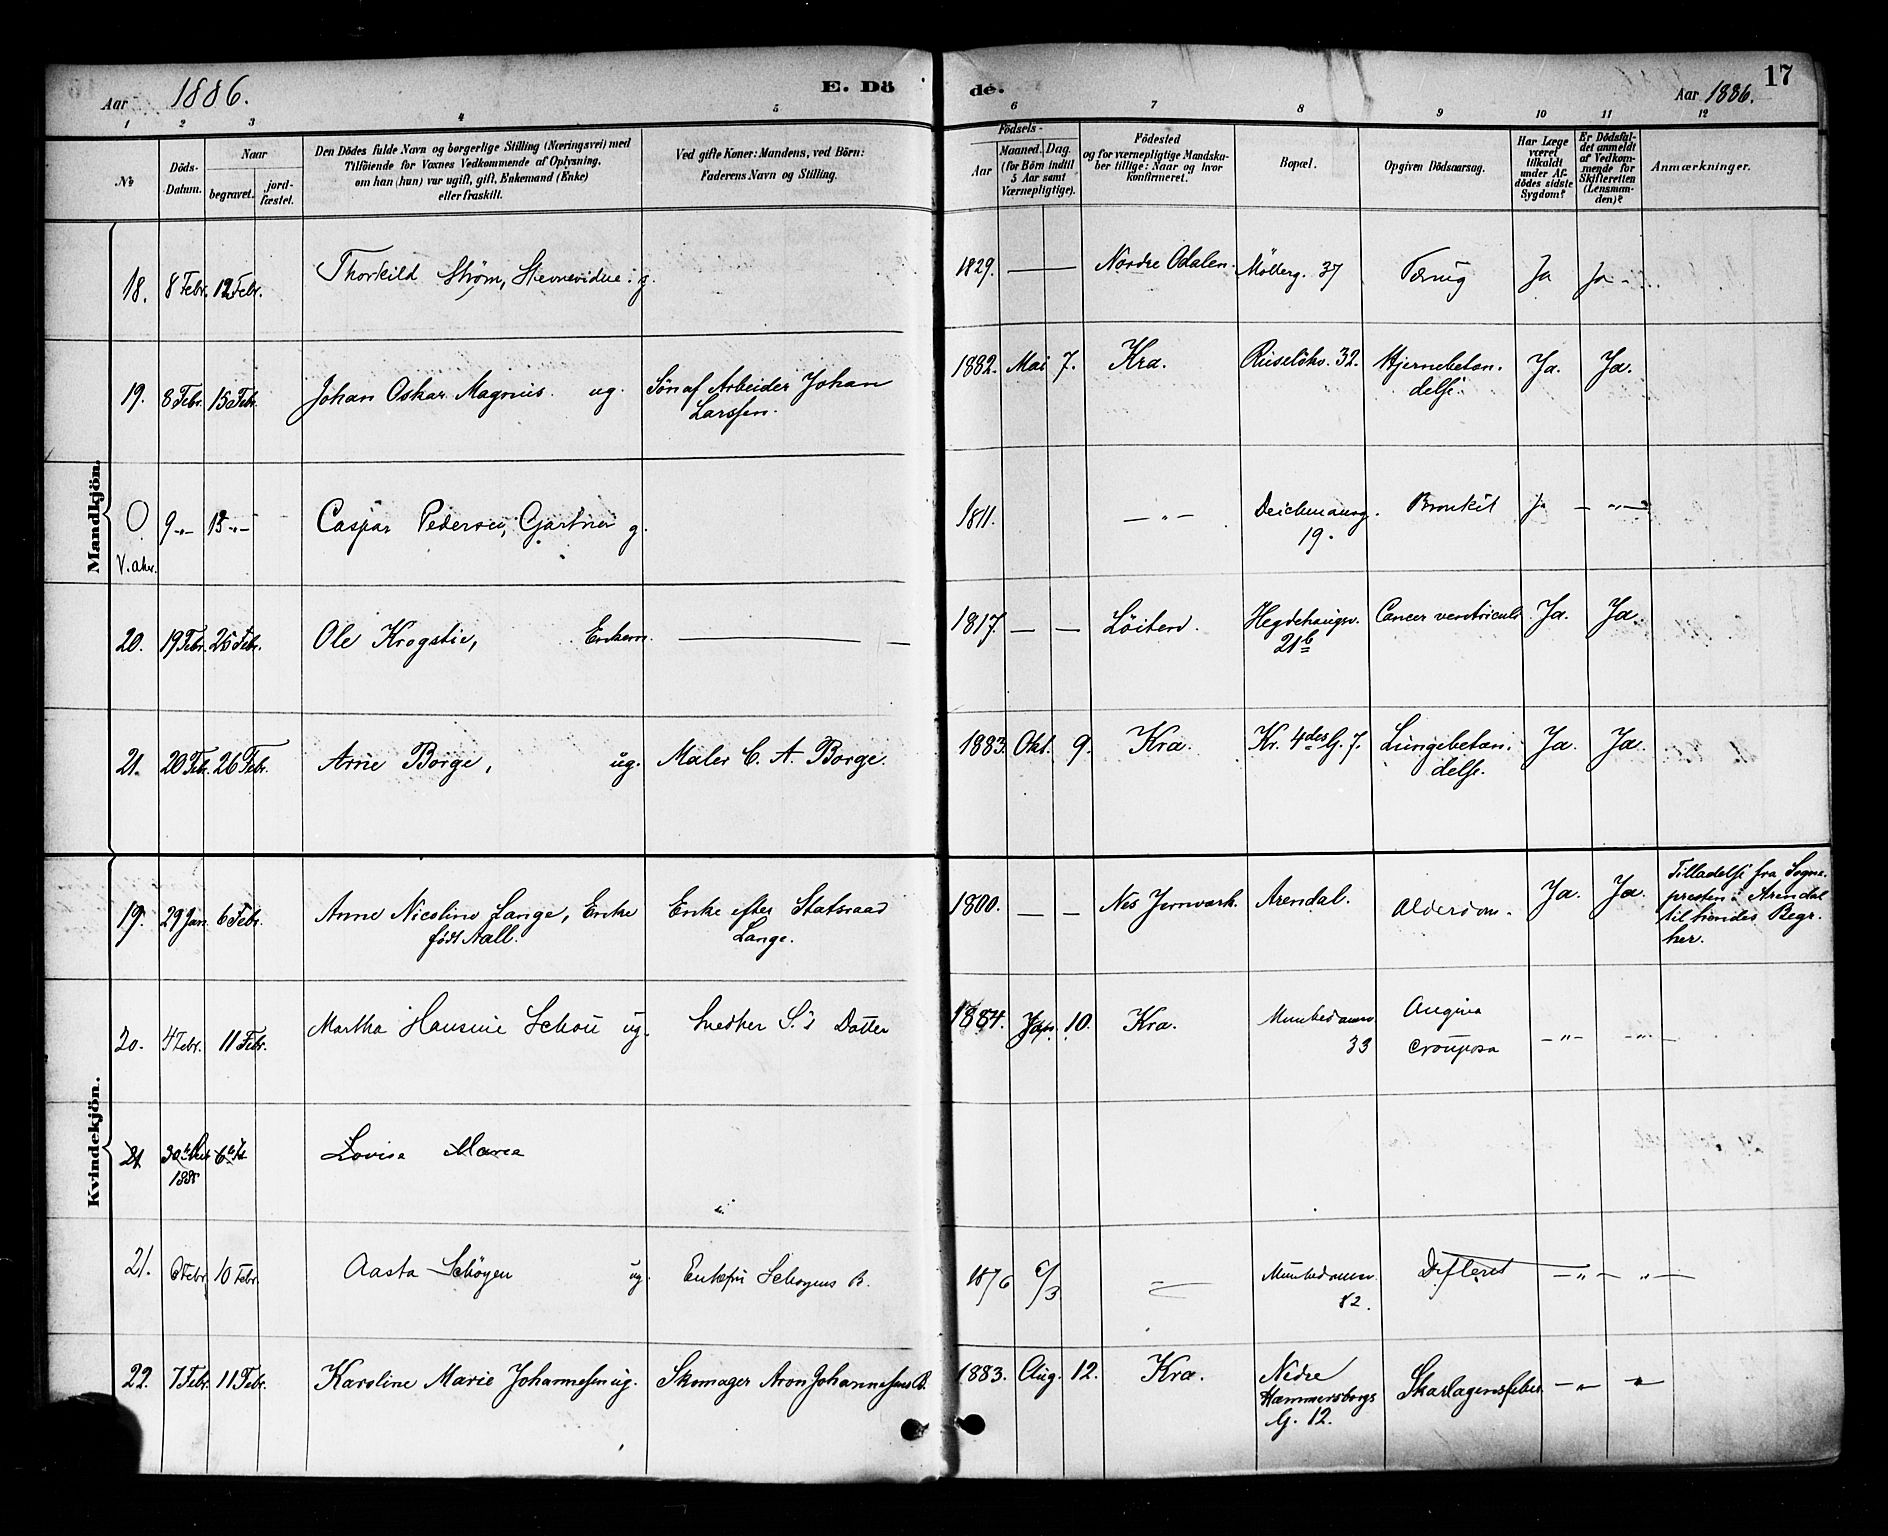 Aar 1886.
E. Döde.
17
Aar 1886.
1 2 3 4 5 6 7 8 9 10 11 12
No
Döds-Datum.
Naar
begravet.
jord-fæstet.
Den Dödes fulde Navn og borgerlige Stilling (Næringsvei) med
Tilföiende for Voxnes Vedkommende af Oplysning,
om han (hun) var ugift, gift, Enkemand (Enke)
eller fraskilt.
Ved gifte Koner: Mandens, ved Börn:
Faderens Navn og Stilling.
Födsels-
Aar
Maaned.
Dag.
(for Börn indtil
5 Aar samt
Værnepligtige).
Födested
og for værnepligtige Mandska-
ber tillige: Naar og hvor
konfirmeret.
Bopæl.
Opgiven Dödsaarsag.
Har Læge
været
tilkaldt
under Af-
dödes sidste
Sygdom?
Er Dödsfal-
det anmeldt
af Vedkom-
mende for
Skifteretten
(Lensman-
den)?
Anmærkninger.
Mandkjön.
18. 8 Febr. 12 Febr. Thorkild Strøm, g. 1829. — — Nordre Odalen. Mölberg. 37 Tæring Ja Ja
19. 8 Febr. 15 Febr. Johan Oskar Magnus. ug. Sön af Arbeider Johan
Larssen.
1882. Mai 7. Kra. Ruselökv. 32. Hjernebetæn-
delse.
Ja. Ja.
O 9 -"- 15 -"- Caspar Pedersen, Gartner g. 1811. — " — Deichmansg.
19.
Bronkit Ja — " —
V. akr.
20. 19 Febr. 25 Febr. Ole Krogstie, Enkem. 1817. — — Löiten. Hegdehaugsv.
21 b
Cancer ventriculi Ja. Ja.
21. 20 Febr. 26 Febr. Arne Borge, ug. Maler C. A. Borge. 1883. Okt. 9. Kra. Kr. 4des G. 7. Lungebetæn-
delse.
Ja. Ja.
Kvindekjön.
19. 29 Jan. 6 Febr. Anne Nicoline Lange, Enke
født Aall.
Enke efter Statsraad
Lange.
1800. — — Nes Jernværk. Arendal. Alderdom. Ja. Ja. Tilladelse fra Sogne-
presten i Arendal
til hendes Begr.
her.
20. 4 Febr. 11 Febr. Martha Hansine Schou ug. Snedker S.'s Datter 1884. Jan. 10. Kra. Munkedamsv.
33
Angina
crouposa
— " — — " —
21 1885 Lovise Marea
21. 6 Febr. 10 Febr. Aasta Schöyen ug. Enkefru Schøyens B. 1876 6/3 — " — Munkedamsv.
82.
Difterit — " — " —
22. 7 Febr. 11 Febr. Karoline Marie Johannesen ug. Skomager Aron Johannesens B. 1883. Aug. 12. Kra. Nedre
Hammersborgs
G. 12.
Skarlagensfeber — " — " —